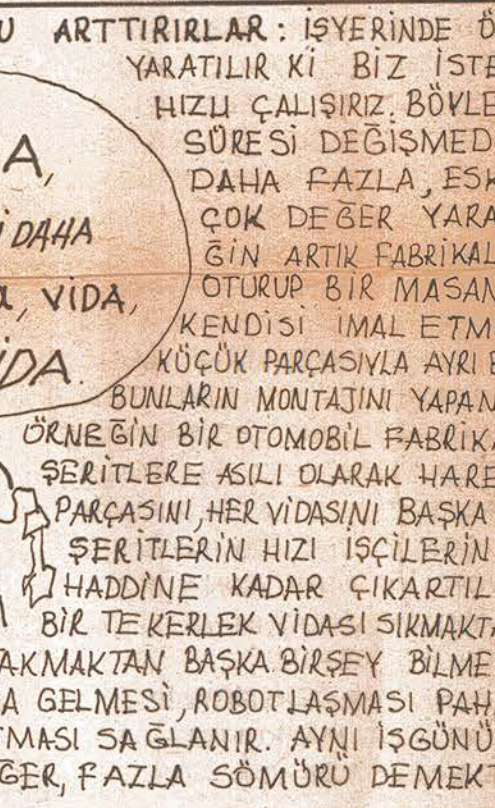 U ARTTIRIRLAR: İŞYERİNDE Ö
YARATILIR Kİ BİZ İSTE
HIZLI ÇALIŞIRIZ. BÖYLE
SÜRESİ DEĞİŞMED
DAHA FAZLA, ESK
ÇOK DEĞER YARA
ĞİN ARTIK FABRİKAL
OTURUP BİR MASAN
KENDİSİ İMAL ETM
KÜÇÜK PARÇASIYLA AYRI B
BUNLARIN MONTAJINI YAPAN
ÖRNEĞİN BİR OTOMOBİL FABRİKA
ŞERİTLERE ASILI OLARAK HARE
PARÇASINI, HER VİDASINI BAŞKA
ŞERİTLERİN HIZI İŞÇİLERİN
HADDİNE KADAR ÇIKARTIL
BİR TEKERLEK VİDASI SIKMAKTA
AKMAKTAN BAŞKA BİRŞEY BİLME
A GELMESİ, ROBOTLAŞMASI PAH
TMASI SAĞLANIR. AYNI İŞGÜNÜ
ĞER, FAZLA SÖMÜRÜ DEMEKT
A,
İ DAHA
a, VİDA,
İDA.